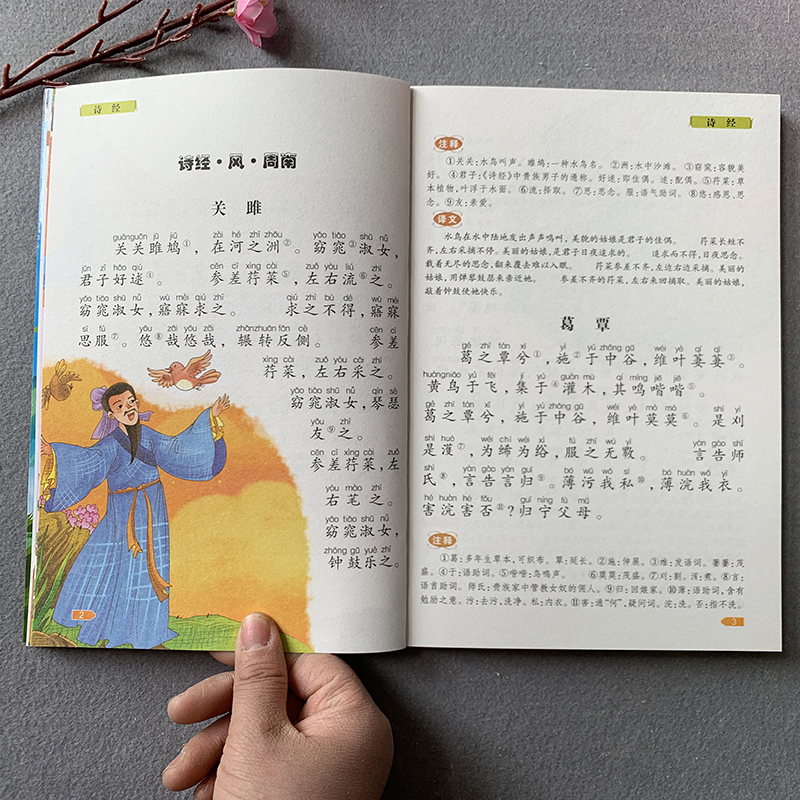 诗经
诗经·风·周南
关雎
guānguān jū jiū zài hé zhī zhōu yǎo tiǎo shū nǚ
关关雎鸠①,在河之洲②。窈窕③淑女,
jūn zǐ hǎo qiú cēn cī xìng cài zuǒ yòu liú zhī
君子好逑④。 参差荇菜⑤,左右流⑥之。
yǎo tiǎo shū nǚ wù mèi qiú zhī qiú zhī bù dé wù mèi
窈窕淑女,寤寐求之。 求之不得,寤寐
sī fú yōu zāi yōu zāi zhǎnzhuǎn fǎn cè cēn cī
思服⑦。悠⑧哉悠哉,辗转反侧。 参差
xìng cài zuǒ yòu cǎi zhī
荇菜,左右采之。
yǎo tiǎo shū nǚ qín sè
窈窕淑女,琴瑟
yǒu zhī
友⑨之。
cēn cī xìng cài zuǒ
参差荇菜,左
yòu mào zhī
右芼之。
yǎo tiǎo shū nǚ
窈窕淑女,
zhōng gǔ yuè zhī
钟鼓乐之。
2
诗经
注释
①关关:水鸟叫声。雎鸠:一种水鸟名。 ②洲:水中沙滩。 ③窈窕:容貌美
好。 ④君子:《诗经》中贵族男子的通称。好逑:即佳偶。逑:配偶。 ⑤荇菜:草
本植物,叶浮于水面。 ⑥流:择取。 ⑦思:思念。服:语气助词。 ⑧悠:感思、思
念。 ⑨友:亲爱。
译文
水鸟在水中陆地发出声声鸣叫,美貌的姑娘是君子的佳偶。 荇菜长短不
齐,左右采摘不停。美丽的姑娘,是君子日夜追求的。 追求而不得,日夜思念。
载着无尽的思念,翻来覆去难以入眠。 荇菜参差不齐,左边右边采摘。美丽的
姑娘,用弹琴鼓瑟来亲近她。 参差不齐的荇菜,左右来回摘取。美丽的姑娘,
敲着钟鼓使她快乐。
葛覃
gé zhī tán xī yì yú zhōng gǔ wéi yè qī qī
葛之覃兮①,施②于中谷,维叶萋萋③。
huángniǎo yú fēi jí yú guàn mù qí míng jiē jiē
黄鸟于飞,集于④灌木,其鸣喈喈⑤。
gé zhī tán xī yì yú zhōng gǔ wéi yè mò mò shì yì
葛之覃兮,施于中谷,维叶莫莫⑥。是刈
shì huò wéi chī wéi xì fú zhī wú yì yán gào shī
是濩⑦,为絺为绤,服之无斁。 言告师
shì yán gào yán guī bó wū wǒ sī bó huàn wǒ yī
氏⑧,言告言归⑨。薄污我私⑩,薄浣我衣。
hé huàn hé fǒu guī níng fù mǔ
害浣害否⑪?归宁父母。
注释
①葛:多年生草本,可织布。覃:延长。 ②施:伸展。 ③维:发语词。萋萋:茂
盛。 ④于:语助词。 ⑤喈喈:鸟鸣声。 ⑥莫莫:茂盛。 ⑦刈:割。濩:煮。 ⑧言:
语首助词。师氏:贵族家中管教女奴的佣人。 ⑨归:回娘家。 ⑩薄:语助词,含有
勉励之意。污:去污,洗净。私:内衣。 ⑪害:通"何",疑问词。浣:洗。否:指不洗。
3